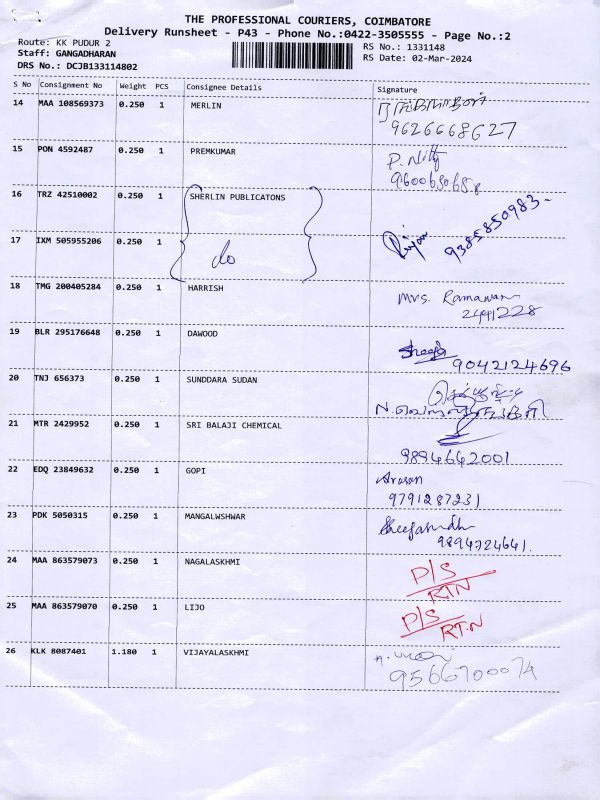 THE PROFESSIONAL COURIERS, COIMBATORE
Delivery Runsheet - P43 - Phone No.:0422-3505555 - Page No.:2
Route: KK PUDUR 2
Staff: GANGADHARAN
DRS No.: DCJB133114802
RS No.: 1331148
RS Date: 02-Mar-2024
S No Consignment No Weight PCS Consignee Details Signature
14 MAA 108569373 0.250 1 MERLIN
9626668627
15 PON 4592487 0.250 1 PREMKUMAR
16 TRZ 42510002 0.250 1 SHERLIN PUBLICATONS
9385850983-
17 IXM 505955206 0.250 1 do
18 TMG 200405284 0.250 1 HARRISH
Mrs. Ramawan
19 BLR 295176648 0.250 1 DAWOOD
9042124696
20 TNJ 656373 0.250 1 SUNDDARA SUDAN
21 MTR 2429952 0.250 1 SRI BALAJI CHEMICAL
9894642001
22 EDQ 23849632 0.250 1 GOPI
Arasan
9791287231
23 PDK 5050315 0.250 1 MANGALWSHWAR
9894724641.
24 MAA 863579073 0.250 1 NAGALASKHMI P/S
RTN
25 MAA 863579070 0.250 1 LIJO P/S
RTN
26 KLK 8087401 1.180 1 VIJAYALASKHMI
9566700074